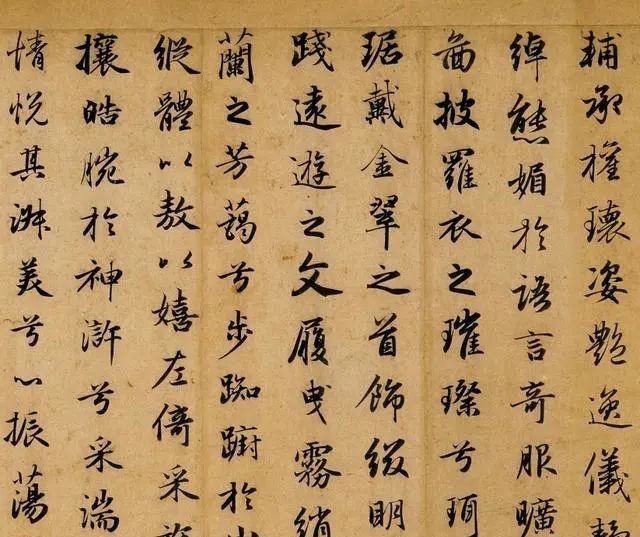 輔承權瓌姿艷逸儀靜
綽態媚於語言奇服曠
啚披羅衣之璀璨兮珥
琚戴金翠之首飾綴明
踐遠遊之文履曳霧綃
蘭之芳藹兮步踟躕於
縱體以敖以嬉左倚采
攘皓腕於神滸兮采湍
情悅其淑美兮心振蕩